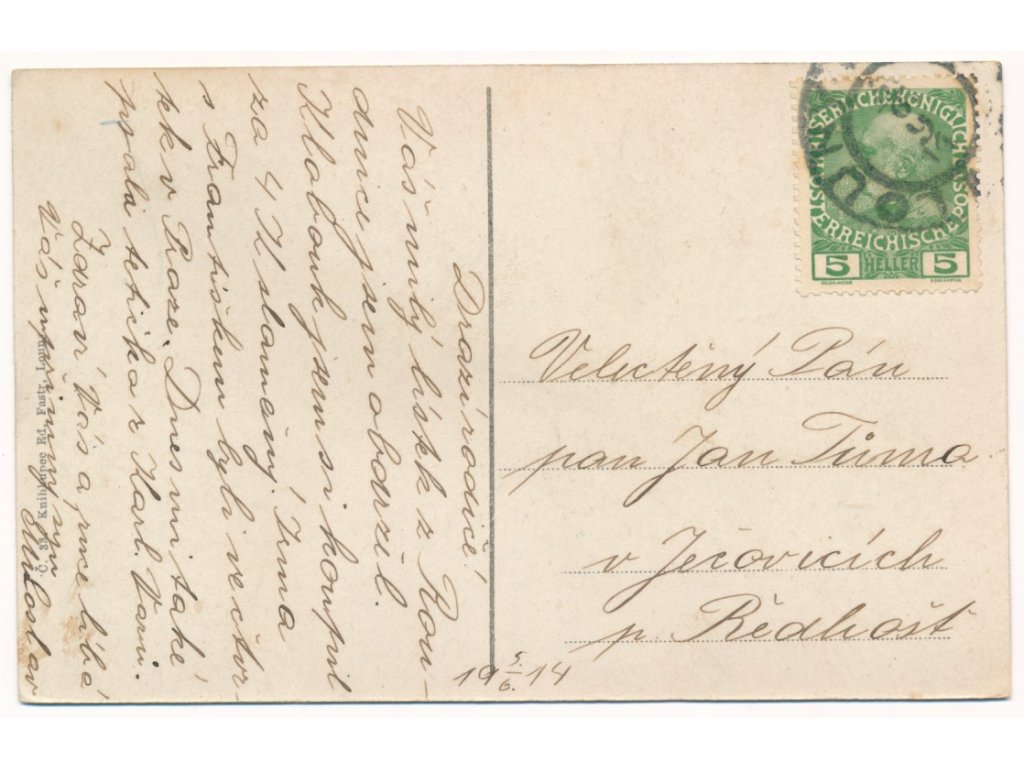 Drazí rodiče!
Váš milý lístek z Rou-
danice jsem obdržel.
Klobouk jsem si koupil
za 4 K slaměný. Irma
s Františkem byli ve čtvr-
tek v Praze. Dnes mi také
psala tetička z Karl. Varů.
Zdraví Vás a ruce líbá
Váš upřímný syn
Miloslav
Č. 33. Knihkupec Ed. Fastr, Louny
KAISERLICHE KÖNIGLICHE
ÖSTERREICHISCHE POST
5 HELLER 5
LOUN
Velectěný Pán
pan Jan Tůma
v Ječovicích
p. Ředhošť
19 5/6. 14